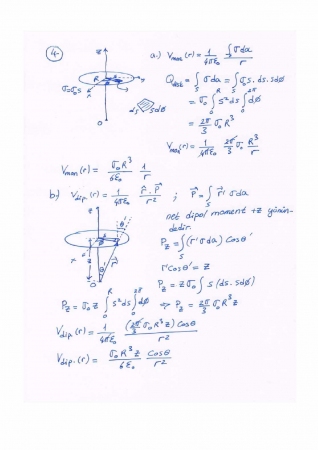 4-
a.) V_mon(r) = 1/4πε₀ ∫_S σda / r
z
R
y
σ=σ₀s
x
O
ds
sdø
Q_disk = ∫_S σda = ∫_S σ₀s.ds.sdø
= σ₀ ∫₀^R s²ds ∫₀^2π dø
= 2π/3 σ₀R³
V_mon(r) = 1/4πε₀ 2π/3 σ₀ R³/r
V_mon(r) = σ₀R³/6ε₀ 1/r
b) V_dip.(r) = 1/4πε₀ r̂.P⃗/r² ; P⃗ = ∫_S r⃗' σda
net dipol moment +z yönün-
dedir.
P_z = ∫_S (r'σda) Cosθ'
r'cosθ' = z
P_z = zσ₀ ∫ s (ds.sdø)
P_z = σ₀z ∫₀^R s²ds ∫₀^2π dø ⇒ P_z = 2π/3 σ₀R³z
V_dip(r) = 1/4πε₀ (2π/3 σ₀R³z) Cosθ / r²
V_dip.(r) = σ₀R³z/6ε₀ Cosθ/r²